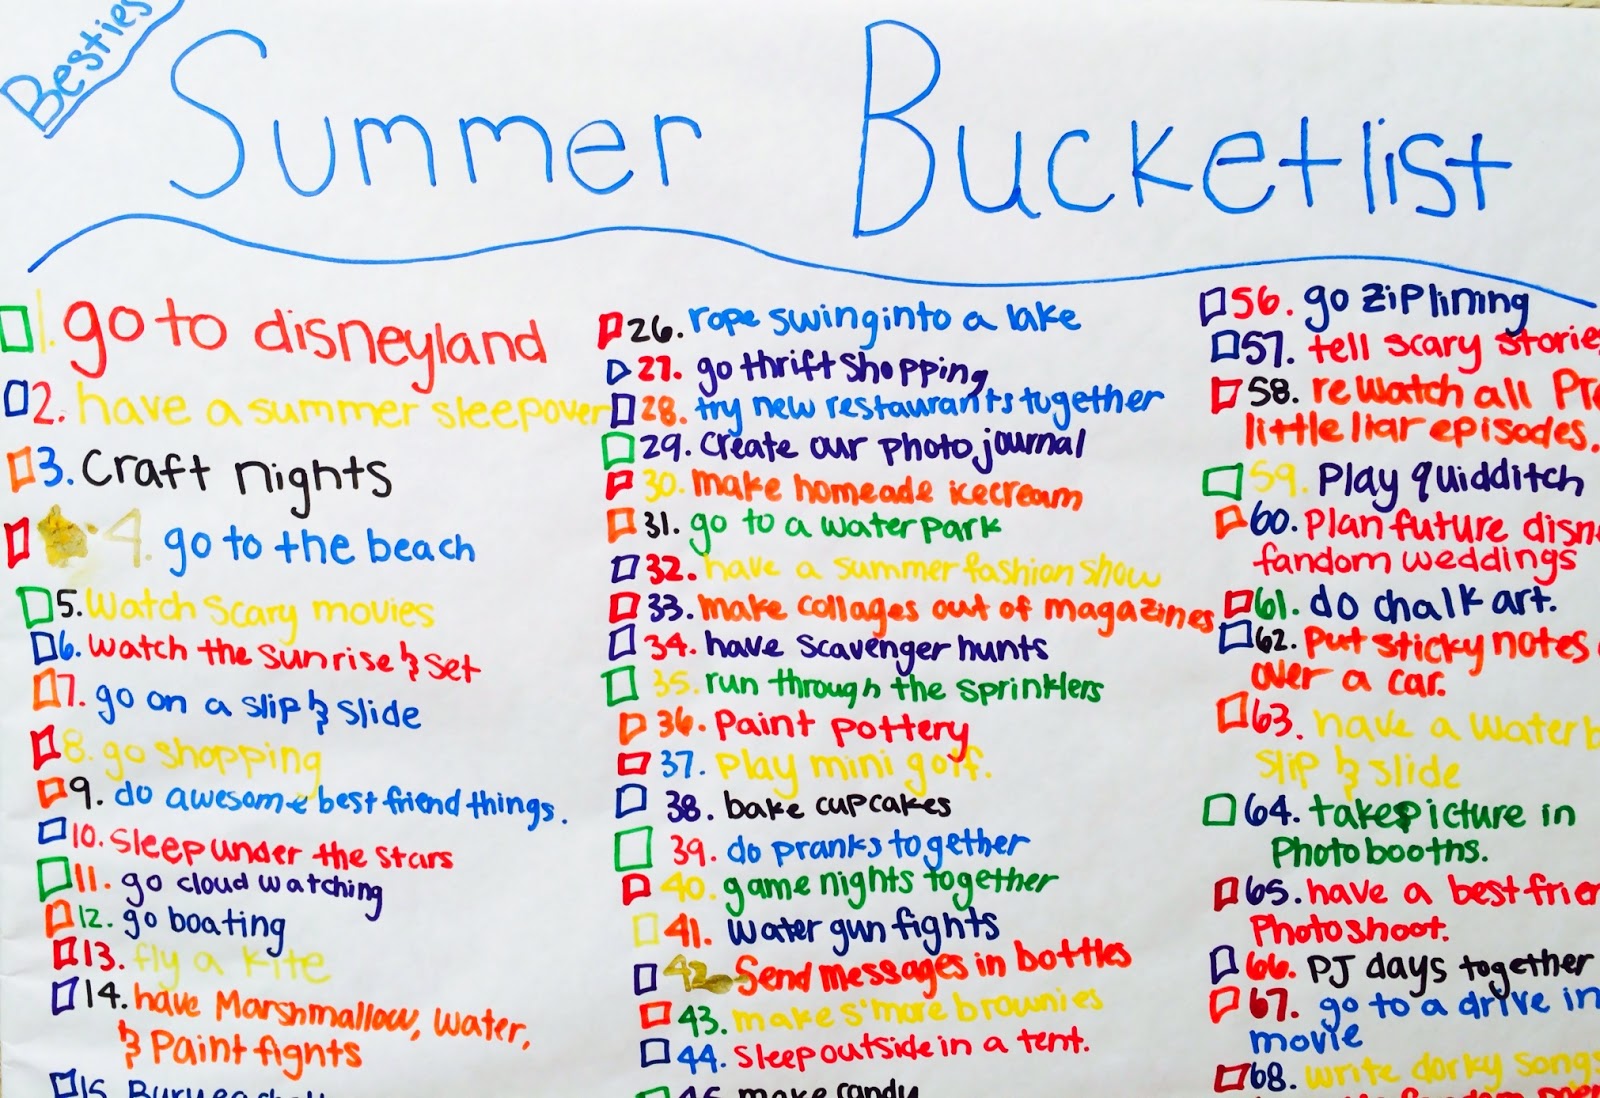 Besties
Summer Bucketlist
1. go to disneyland
2. have a summer sleepover
3. Craft nights
4. go to the beach
5. Watch scary movies
6. watch the sunrise & set
7. go on a slip & slide
8. go shopping
9. do awesome best friend things.
10. Sleep under the stars
11. go cloud watching
12. go boating
13. fly a kite
14. have Marshmallow, water,
& Paint fights
15.
26. rope swing into a lake
27. go thrift shopping
28. try new restaurants together
29. Create our photo journal
30. make homeade icecream
31. go to a water park
32. have a summer fashion show
33. make collages out of magazines
34. have scavenger hunts
35. run through the sprinklers
36. Paint pottery
37. Play mini golf.
38. bake cupcakes
39. do pranks together
40. game nights together
41. water gun fights
42. Send messages in bottles
43. make s'more brownies
44. sleep outside in a tent.
make candy
56. go ziplining
57. tell scary storie
58. rewatch all Pre
little liar episodes.
59. Play quidditch
60. Plan future disn
fandom weddings
61. do chalk art.
62. Put sticky notes
over a car.
63. have a water b
slip & slide
64. take picture in
Photo booths.
65. have a best frien
Photo shoot.
66. PJ days together
67. go to a drive in
movie
68. write dorky songs